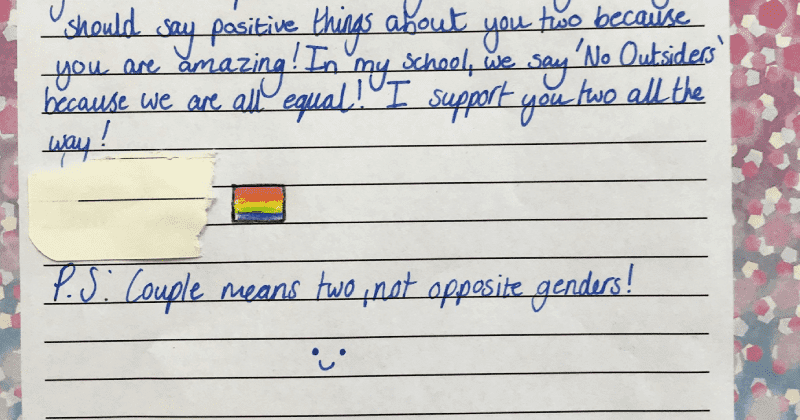 should say positive things about you two because
you are amazing! In my school, we say 'No Outsiders'
because we are all equal! I support you two all the
way!
P.S: Couple means two, not opposite genders!